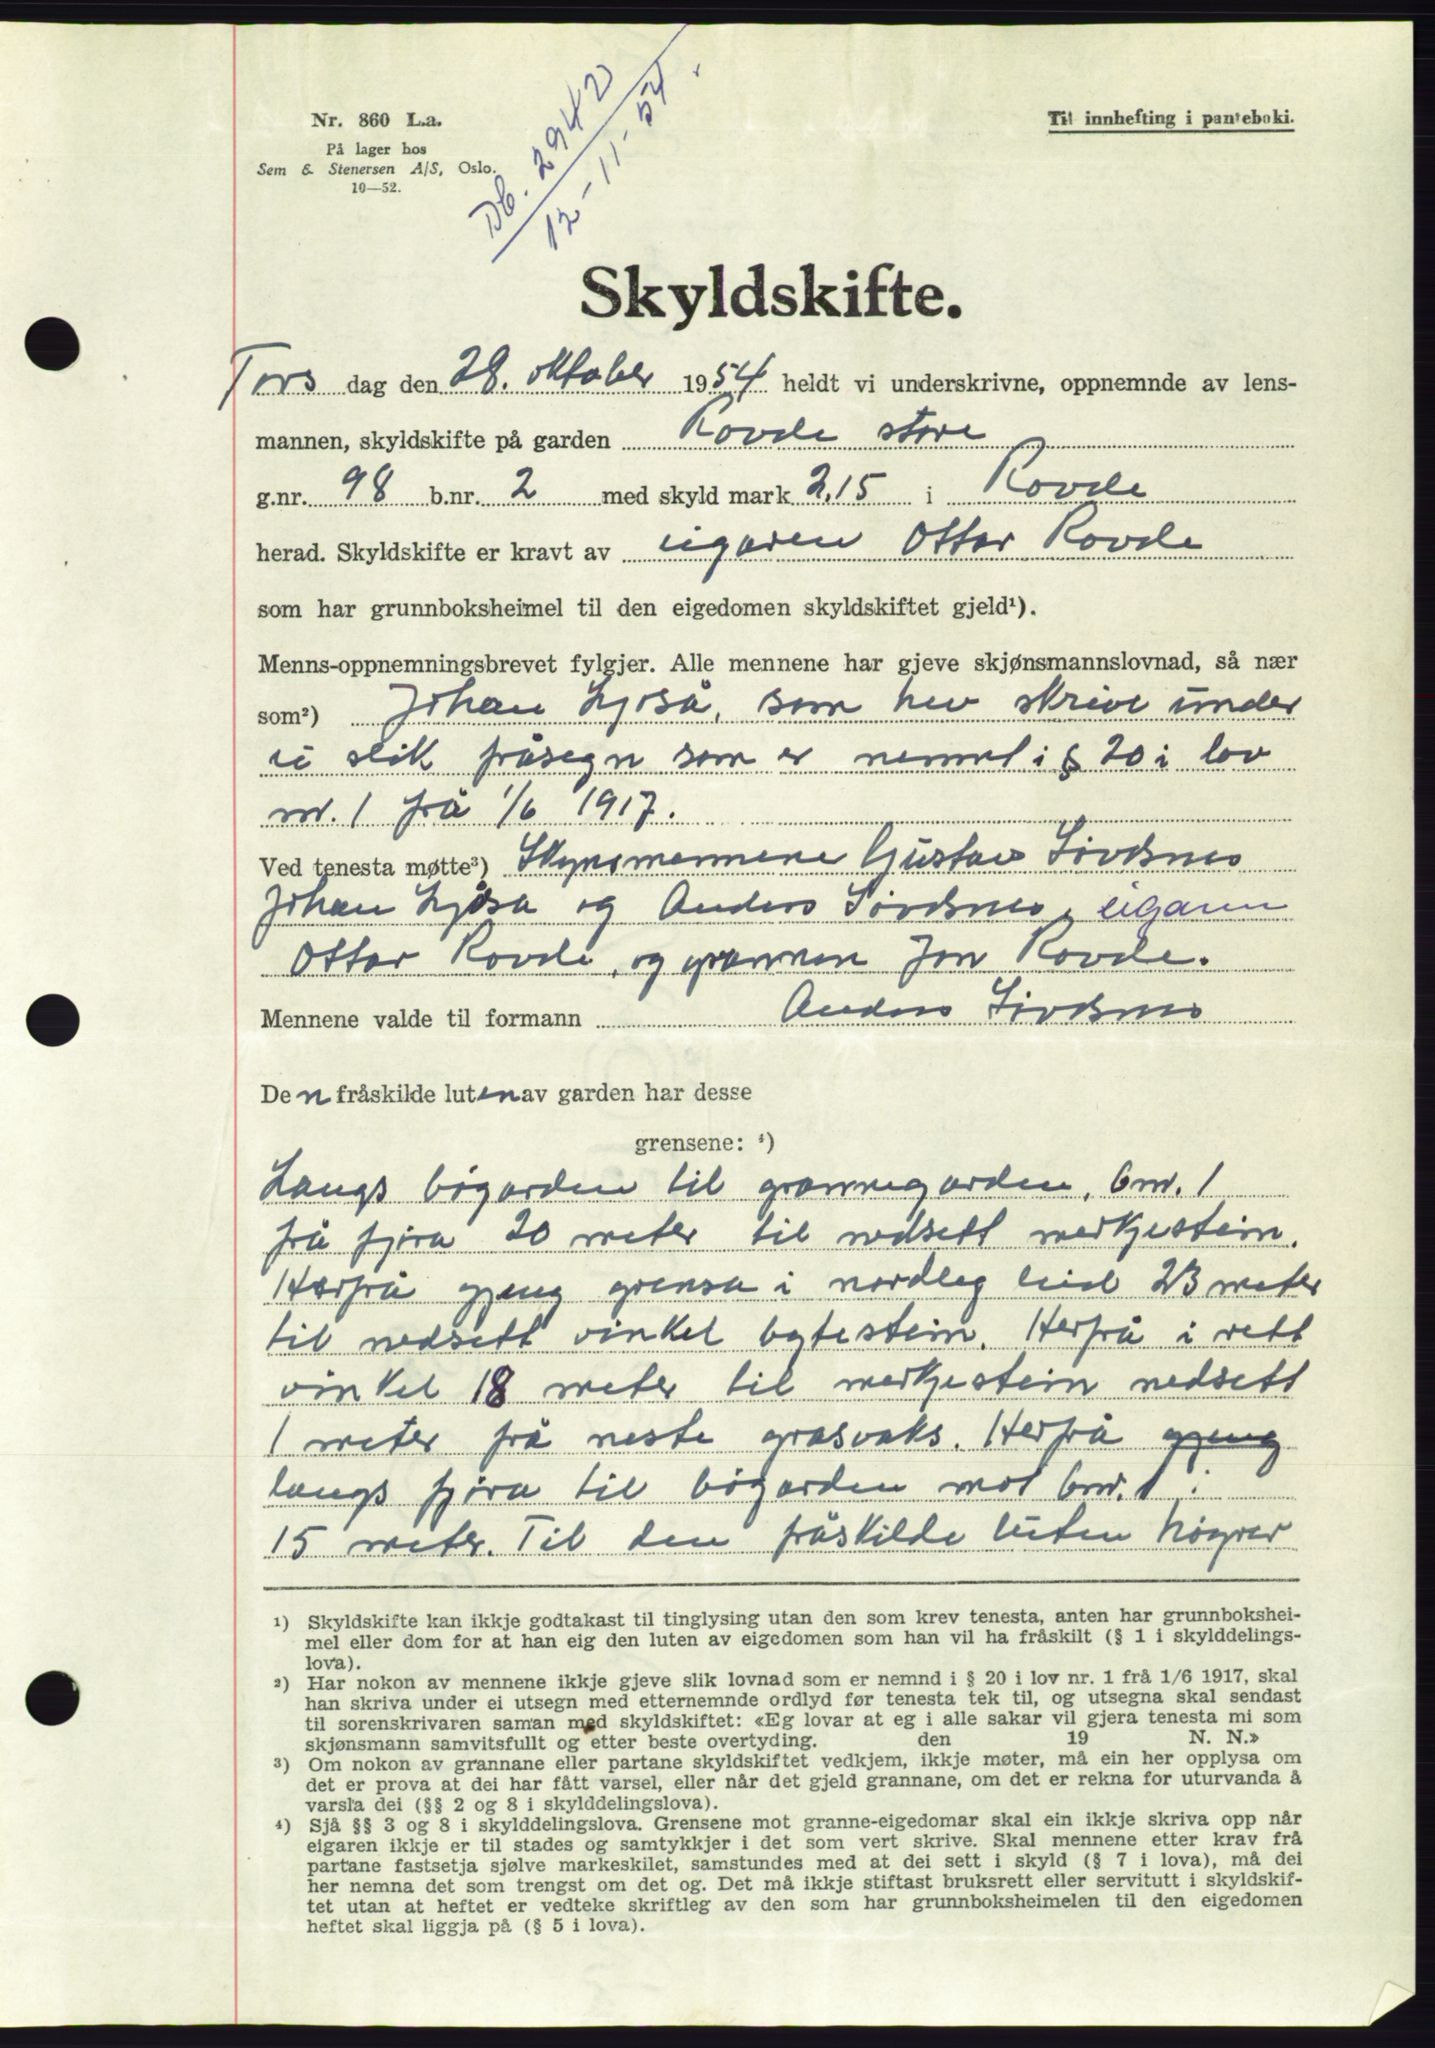 Nr. 860 L.a.
På lager hos
Sem & Stenersen A/S, Oslo.
10—52.
Db. 2942
12-11-54.
Til innhefting i panteboki.
Skyldskifte.
Tors dag den 28. oktober 1954 heldt vi underskrivne, oppnemnde av lens-
mannen, skyldskifte på garden Rovde store
g.nr. 98 b.nr. 2 med skyld mark 2,15 i Rovde
herad. Skyldskifte er kravt av eigaren Ottar Rovde
som har grunnboksheimel til den eigedomen skyldskiftet gjeld¹).
Menns-oppnemningsbrevet fylgjer. Alle mennene har gjeve skjønsmannslovnad, så nær
som²) Johan Ljoså, som hev skrive under
ei slik fråsegn som er nemnt i § 20 i lov
nr. 1 frå 1/6 1917.
Ved tenesta møtte³) Skynsmennene Gustav Sivdsnes
Johan Ljoså og Anders Sivdsnes, eigaren
Ottar Rovde, og grannen Jon Rovde.
Mennene valde til formann Anders Sivdsnes
Den fråskilde luten av garden har desse
grensene: ⁴)
Langs bøgarden til grannegarden, bnr. 1
frå fjøra 20 meter til nedsett merkjestein.
Herfrå gjeng grensa i nordleg leid 23 meter
til nedsett vinkel bytestein. Herfrå i rett
vinkel 18 meter til merkjestein nedsett
1 meter frå neste grasvaks. Herfrå gjeng
langs fjøra til bøgarden mot bnr. 1:
15 meter. Til den fråskilde luten høyrer
¹) Skyldskifte kan ikkje godtakast til tinglysing utan den som krev tenesta, anten har grunnbokshei-
mel eller dom for at han eig den luten av eigedomen som han vil ha fråskilt (§ 1 i skylddelings-
lova).
²) Har nokon av mennene ikkje gjeve slik lovnad som er nemnd i § 20 i lov nr. 1 frå 1/6 1917, skal
han skriva under ei utsegn med etternemnde ordlyd før tenesta tek til, og utsegna skal sendast
til sorenskrivaren saman med skyldskiftet: «Eg lovar at eg i alle sakar vil gjera tenesta mi som
skjønsmann samvitsfullt og etter beste overtyding. den 19 N. N.»
³) Om nokon av grannane eller partane skyldskiftet vedkjem, ikkje møter, må ein her opplysa om
det er prova at dei har fått varsel, eller når det gjeld grannane, om det er rekna for uturvanda å
varsla dei (§§ 2 og 8 i skylddelingslova).
⁴) Sjå §§ 3 og 8 i skylddelingslova. Grensene mot granne-eigedomar skal ein ikkje skriva opp når
eigaren ikkje er til stades og samtykkjer i det som vert skrive. Skal mennene etter krav frå
partane fastsetja sjølve markeskilet, samstundes med at dei sett i skyld (§ 7 i lova), må dei
her nemna det som trengst om det og. Det må ikkje stiftast bruksrett eller servitutt i skyldskif-
tet utan at heftet er vedteke skriftleg av den som har grunnboksheimelen til den eigedomen
heftet skal liggja på (§ 5 i lova).